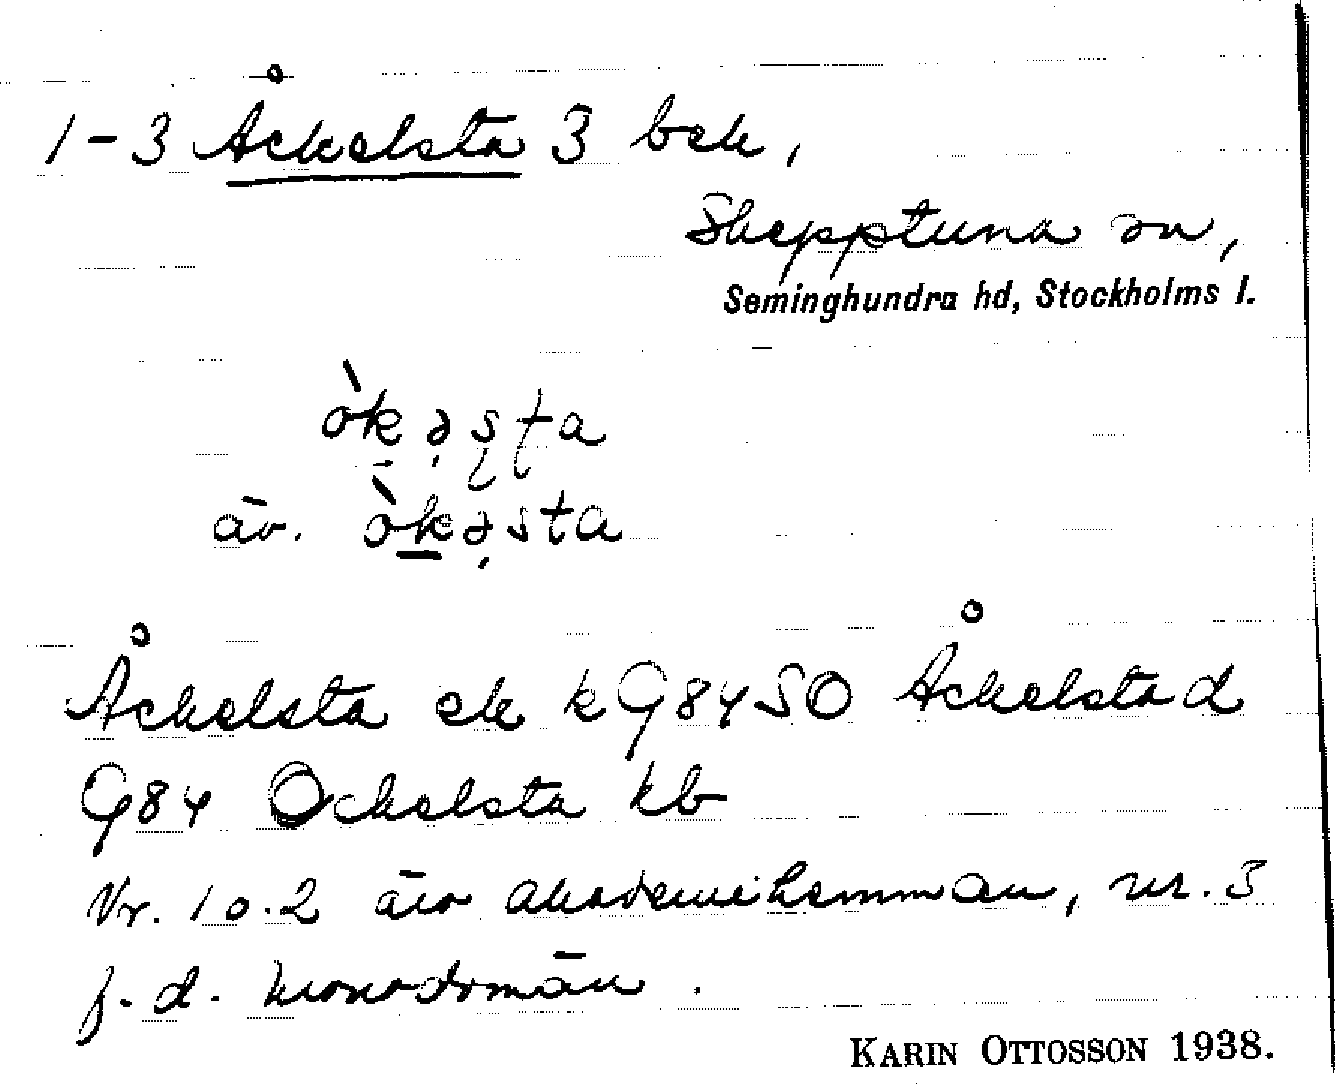 1-3 Åckelsta 3 bck,
Skepptuna sn,
Seminghundra hd, Stockholms l.
òkəsta
äv. òkəsta
Åckelsta ek k G84 SO Åckelstad
G84 Ockelsta kb
Nr. 1 o. 2 äro akademihemman, nr. 3
f. d. kronodomän.
KARIN OTTOSSON 1938.